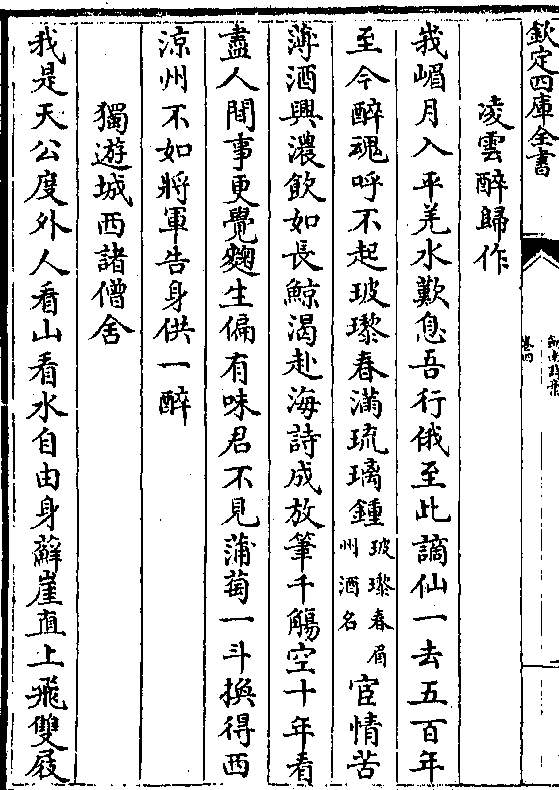 欽定四庫全書
卷四
凌雲醉歸作
我嵋月入平羌水歎息吾行俄至此謫仙一去五百年
至今醉魂呼不起玻瓈春滿琉璃鍾玻瓈春眉州酒名宦情苦
薄酒興濃飲如長鯨渴赴海詩成放筆千觴空十年看
盡人間事更覺麴生偏有味君不見蒲萄一斗換得西
涼州不如將軍告身供一醉
獨遊城西諸僧舍
我是天公度外人看山看水自由身蘚崖直上飛雙屐